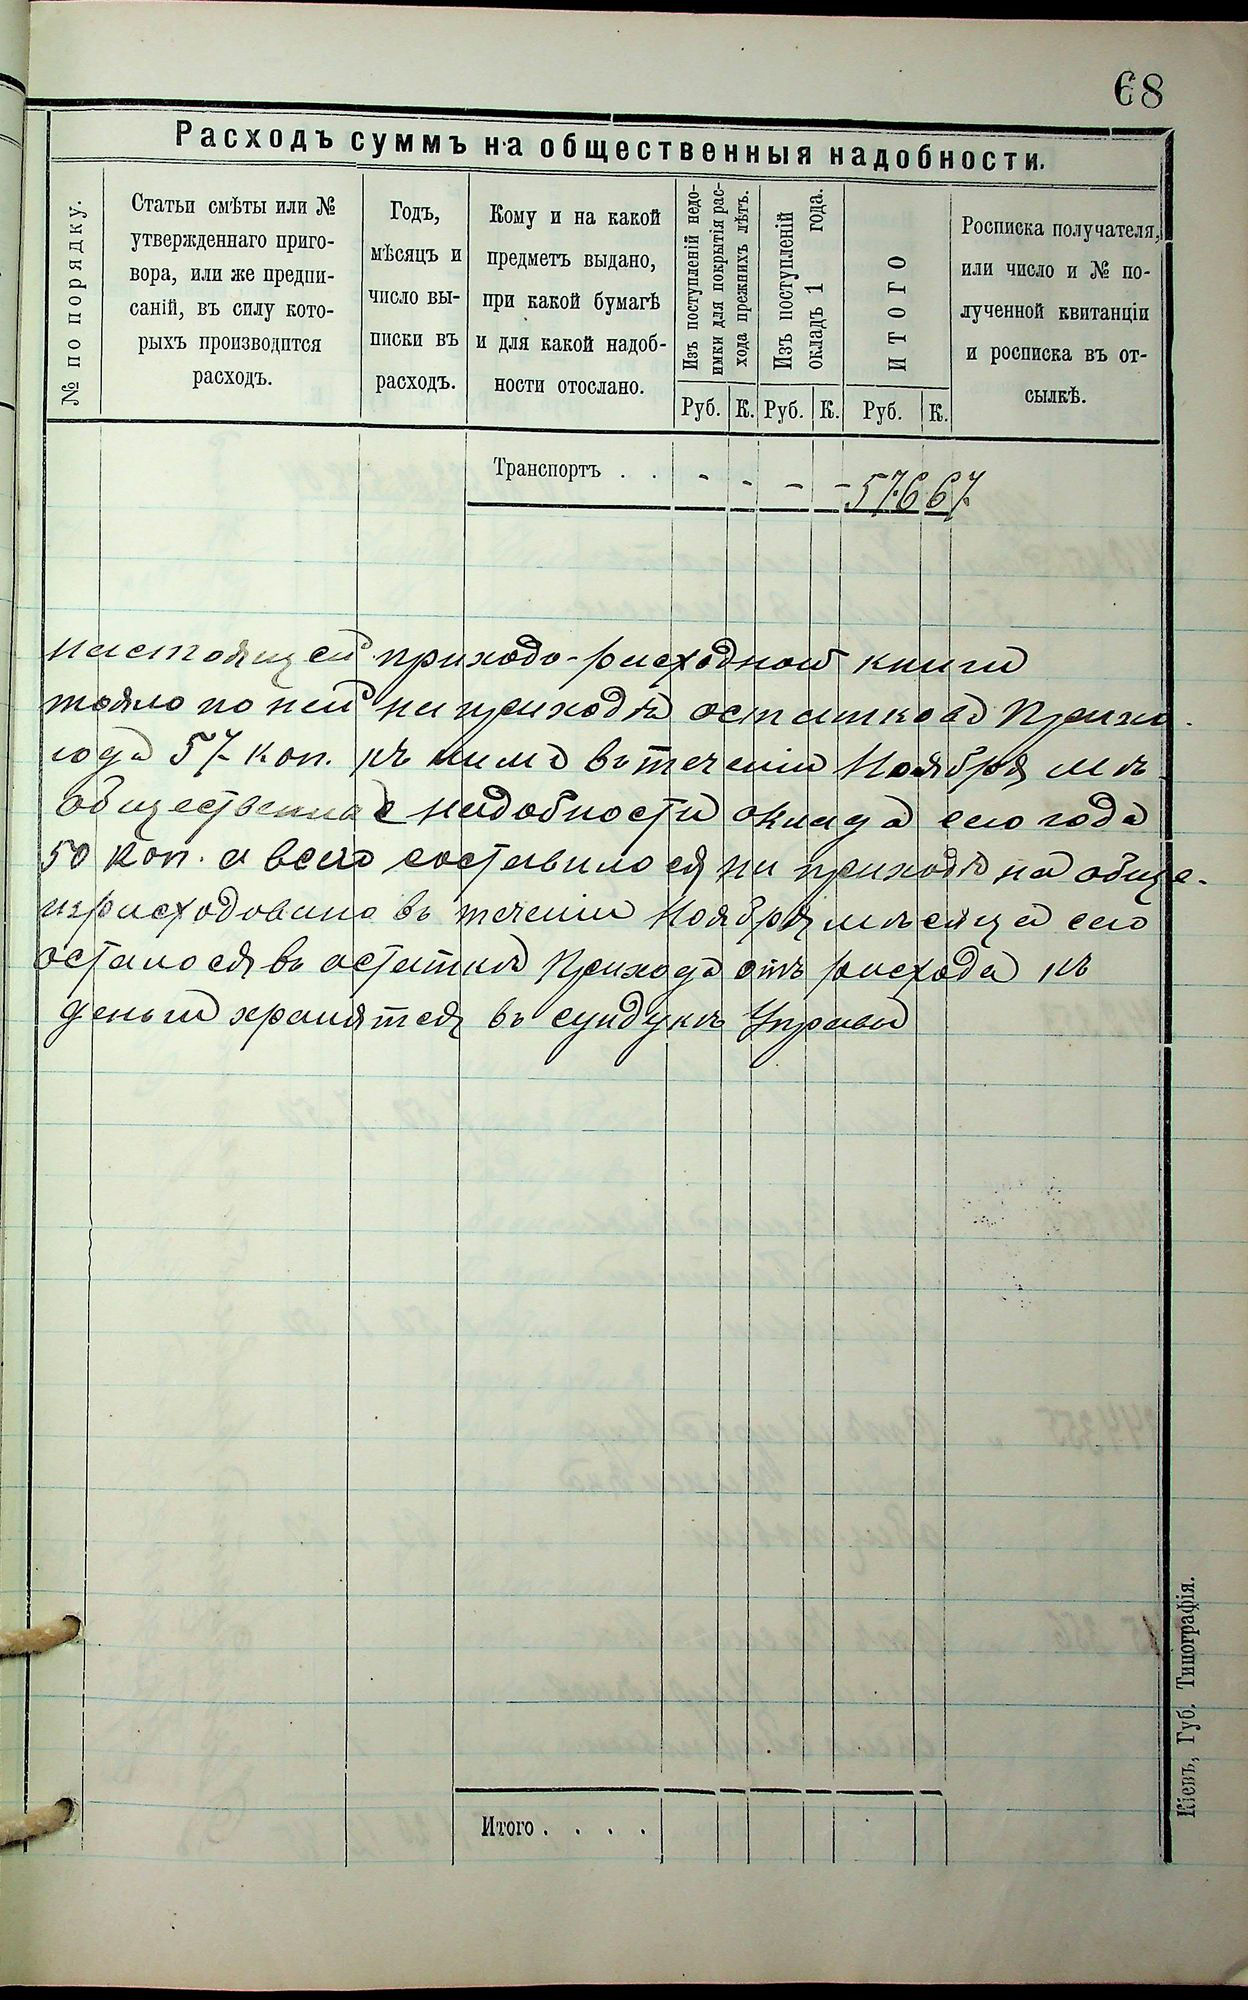 68
Расходъ суммъ на общественныя надобности.
№ по порядку.
Статьи смѣты или №
утвержденнаго приго-
вора, или же предпи-
саній, въ силу кото-
рыхъ производится
расходъ.
Годъ,
мѣсяцъ и
число вы-
писки въ
расходъ.
Кому и на какой
предметъ выдано,
при какой бумагѣ
и для какой надоб-
ности отослано.
Изъ поступленій недо-
имки для покрытія рас-
хода прежнихъ лѣтъ.
Изъ поступленій
окладъ 1 года.
ИТОГО
Росписка получателя,
или число и № по-
лученной квитанціи
и росписка въ от-
сылкѣ.
Руб. К. Руб. К. Руб. К.
Транспортъ . . - - - - 576 67
настоящей приходо-расходной книги
тояло по ней на приходѣ остатковъ Прихо
года 57 коп. къ нимъ въ теченіи Ноября мѣ
общественные надобности оклада сего года
50 коп. а всего составилося на приходѣ на обще-
израсходовано въ теченіи Ноября мѣсяца сего
осталося въ остаткѣ Прихода отъ расхода къ
деньги хранятся въ сундукѣ Управы
Итого . . . .
Кіевъ, Губ. Типографія.